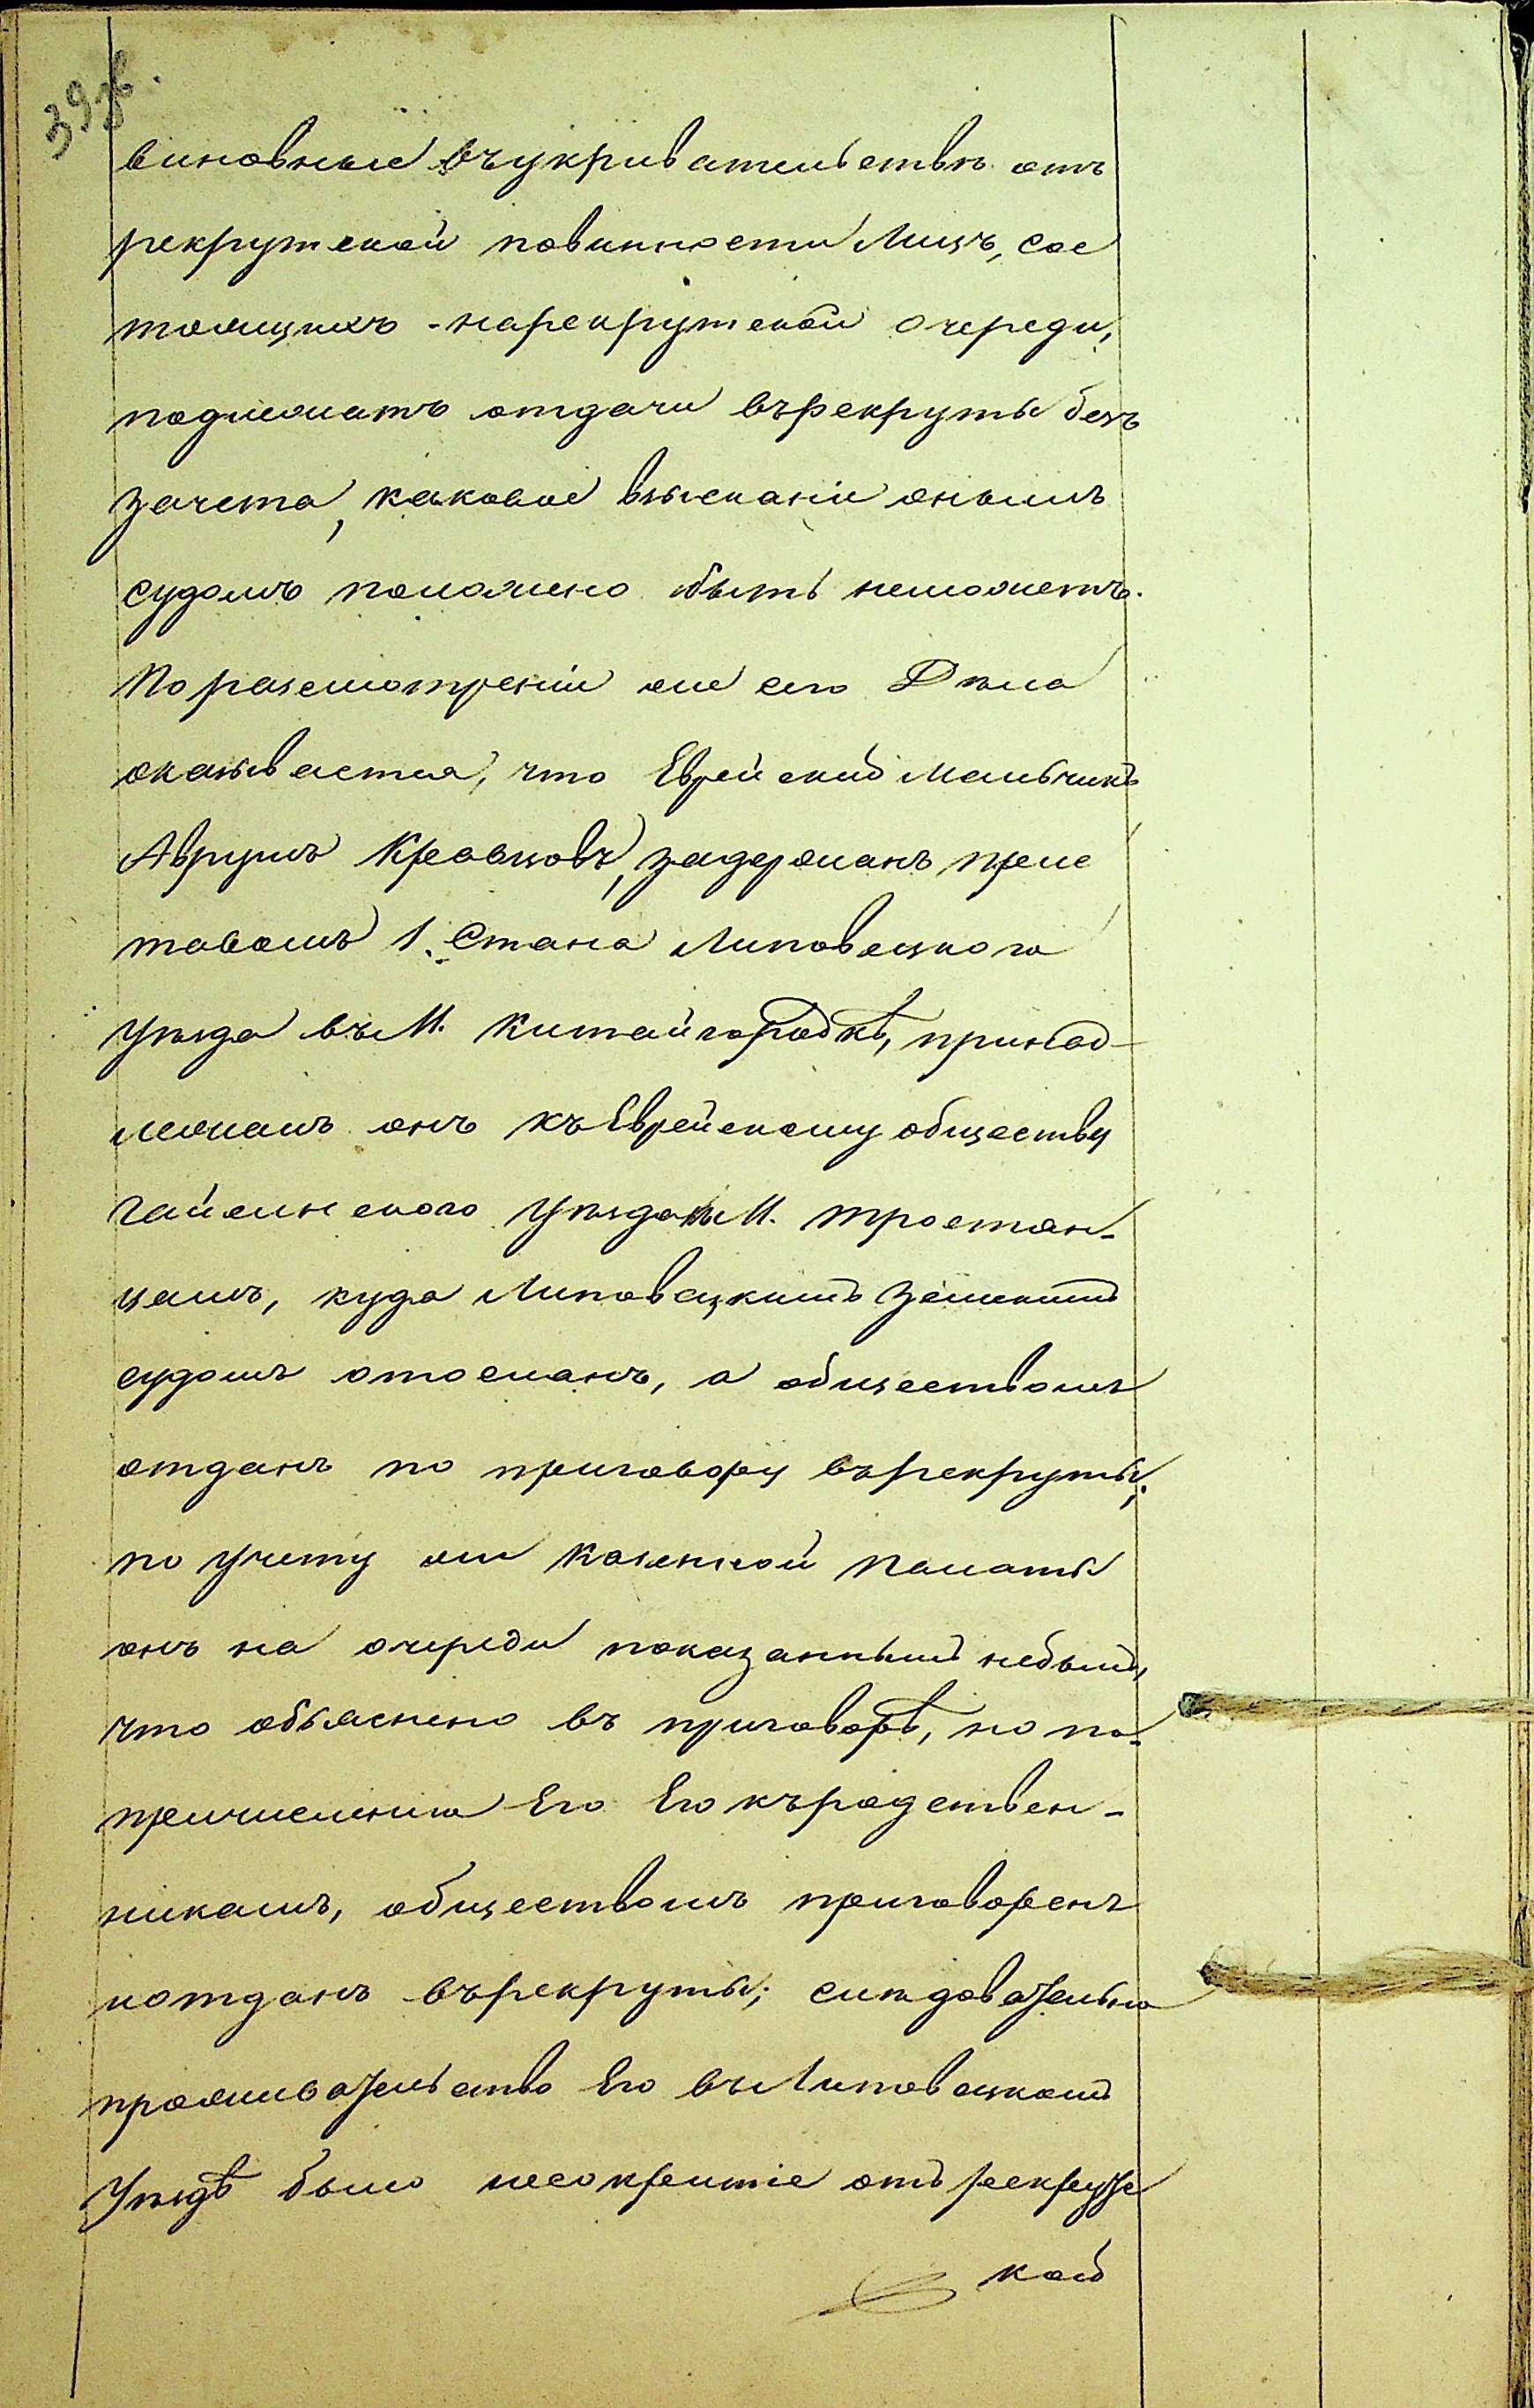 39 об.
виновные въ укривательствѣ отъ
рекрутской повинности Лицъ, сос
тоящихъ - на рекрутской очереди,
подлежатъ отдачи въ рекруты безъ
зачета, каковое взысканіе онымъ
судомъ положено быть неможетъ.
По разсмотреніи же сего Дѣла
оказывается, что Еврейскій Мальчикъ
Аврумъ Кравцовъ, задержанъ прис
тавомъ 1. Стана Липовецкого
уѣзда въ М. Китайгородкѣ, принад-
лежалъ онъ къ Еврейскому обществу
Гайсинского уѣзда М. Тростян-
цамъ, куда Липовецкимъ Земскимъ
судомъ отосланъ, а обществомъ
отданъ по приговору въ рекруты;
по учету же Казенной Палаты
онъ на очереди показаннымъ небылъ,
что объяснено въ приговорѣ, но по-
причисленію Его Его къ родствен-
никамъ, обществомъ приговоренъ
иотданъ въ рекруты; слѣдовательно
проживательство Его въ Липовецкомъ
уѣздѣ было несокрытіе отъ рекрутс
кой